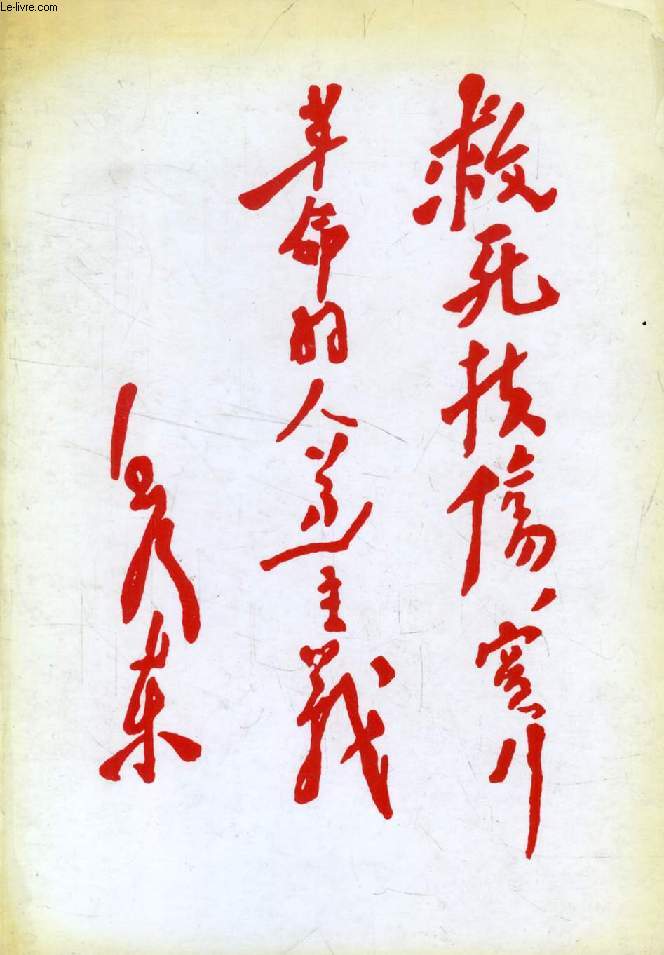 Le-livre.com
救死扶傷、實行
革命的人道主義
毛澤东